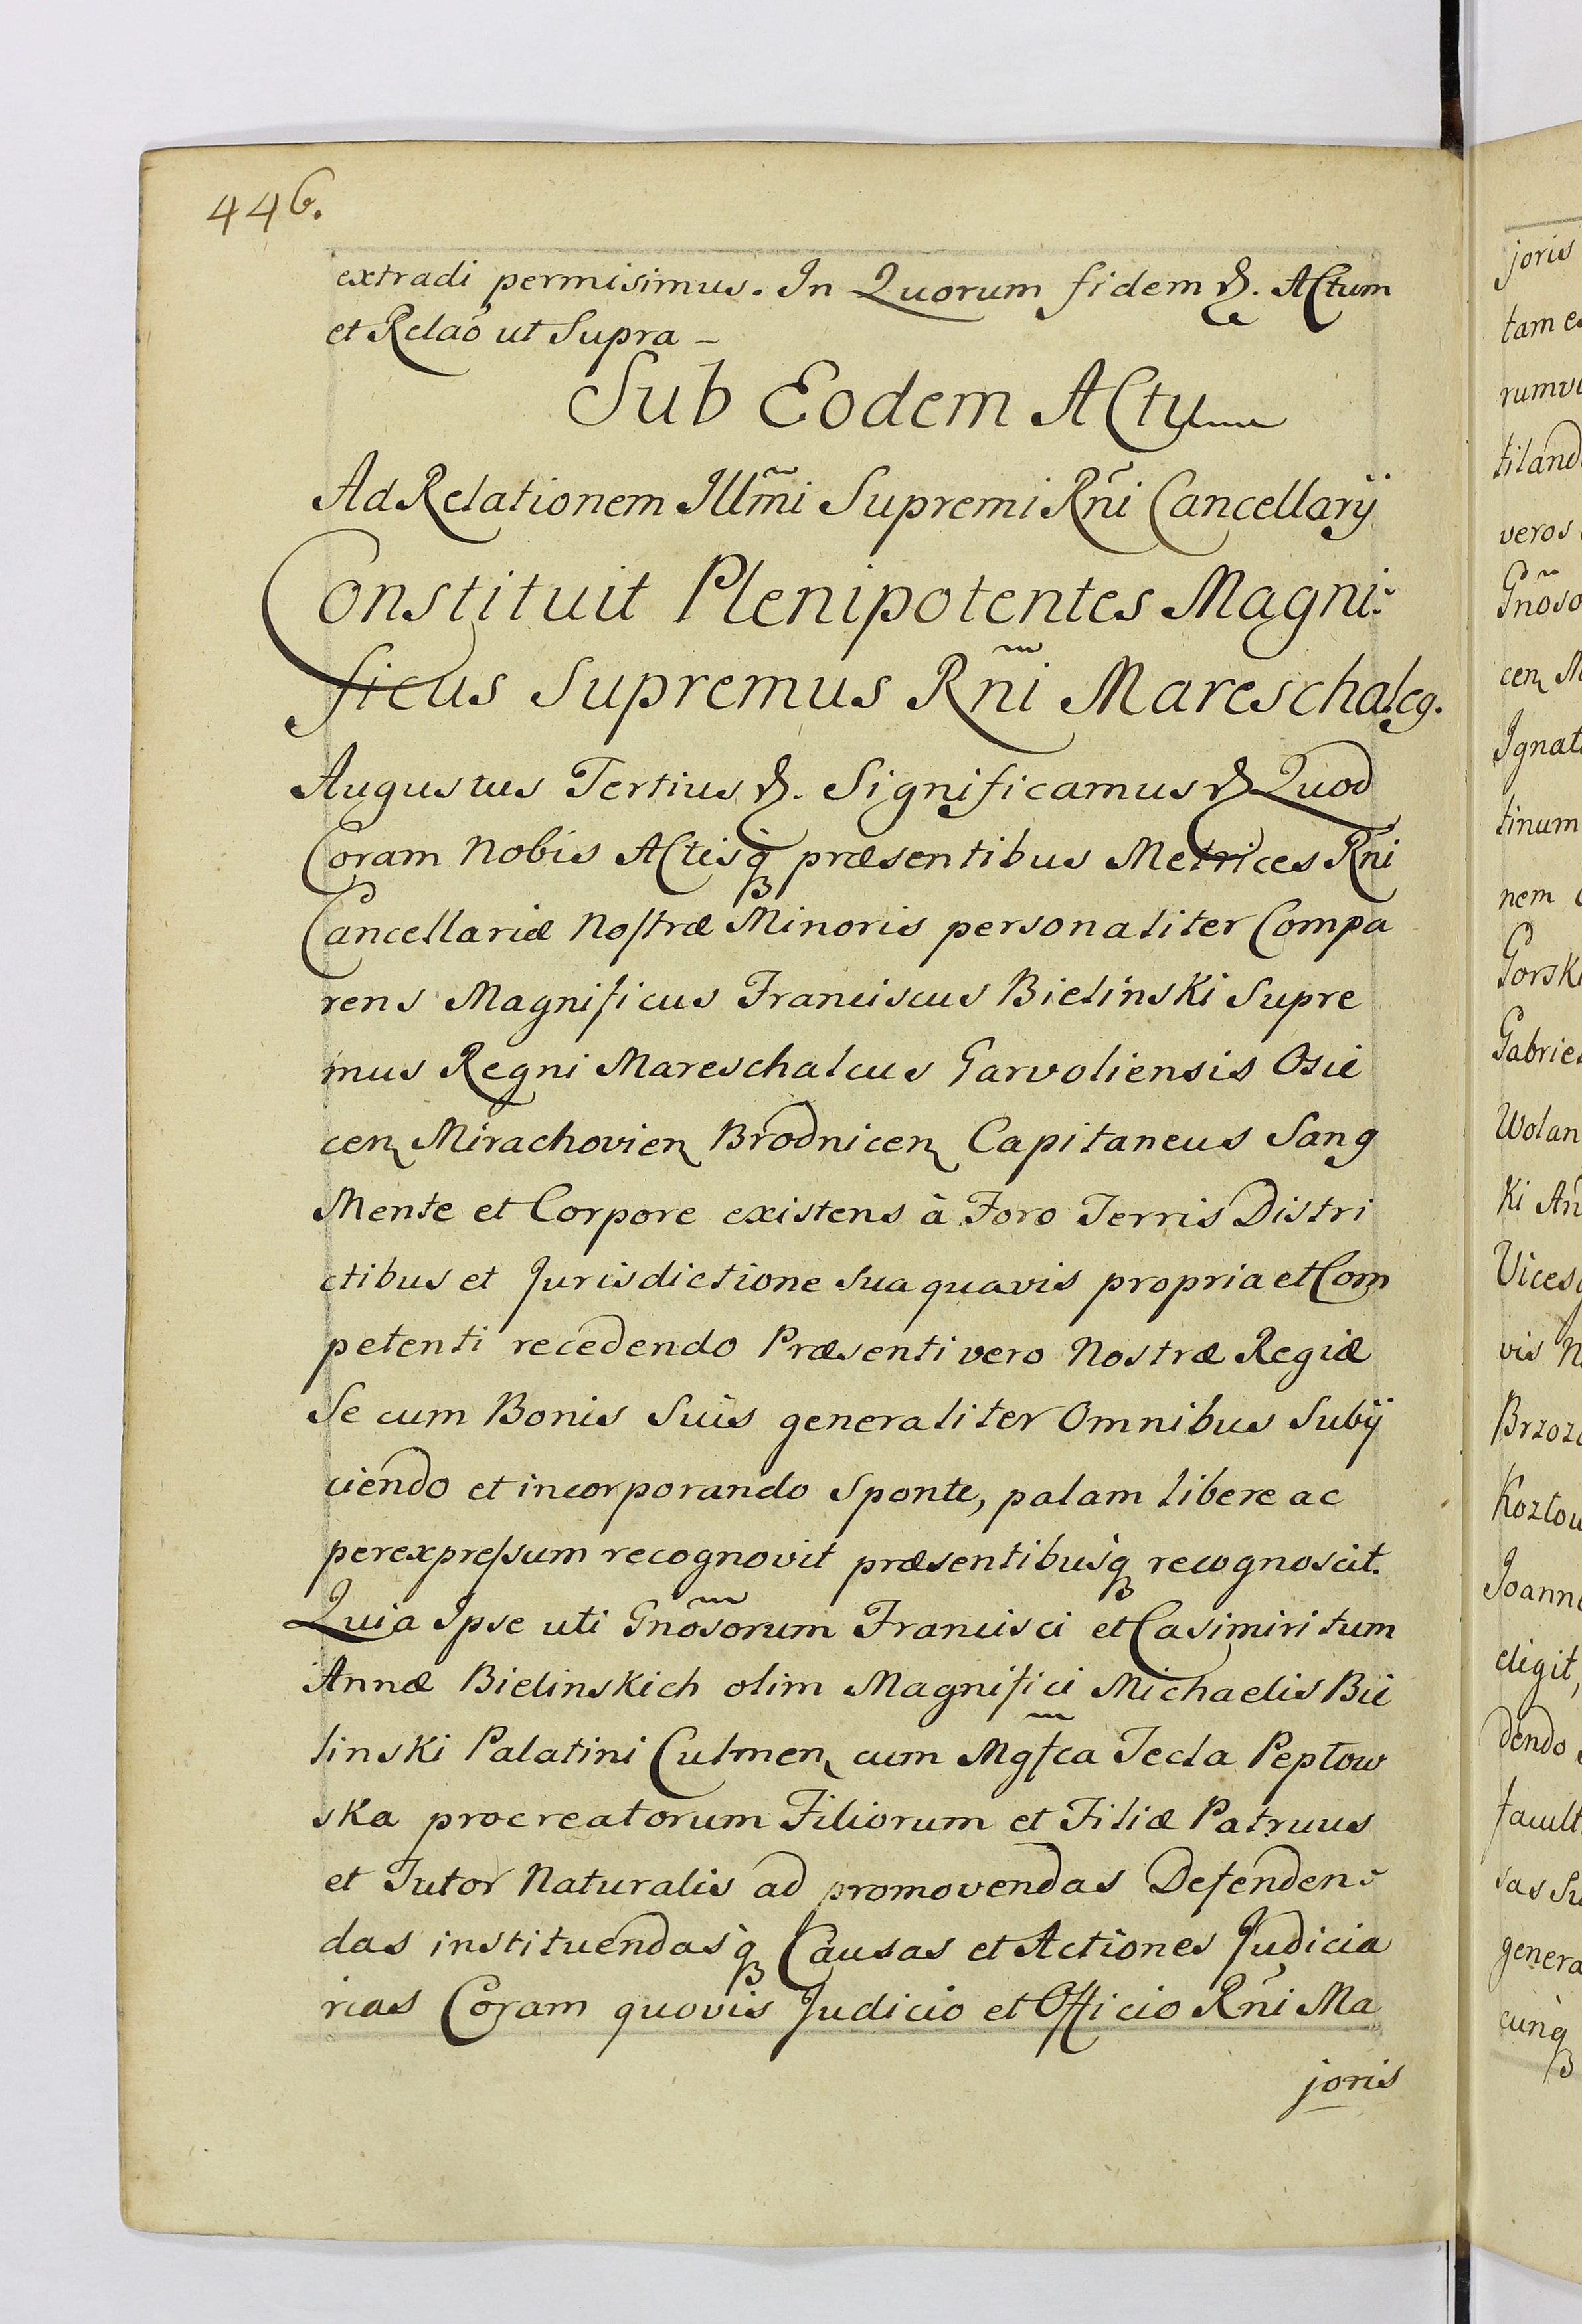 446.
extradi permisimus. In Quorum fidem &. Actum
et Relaõ ut Supra –
Sub Eodem Actu
Ad Relationem Illm̃i Supremi Rñi Cancellarÿ
Constituit Plenipotentes Magni-
ficus Supremus Rñi Mareschalcq.
Augustus Tertius &. Significamus & Quod
Coram Nobis Actisq́ præsentibus Metrices Rñi
Cancellariæ Nostræ Minoris personaliter Compa
rens Magnificus Franciscus Bielinski Supre
mus Regni Mareschalcus Garvoliensis Osie
cen Mirachovien Brodnicen Capitaneus Sang
Mente et Corpore existens à Foro Terris Distri
ctibus et Jurisdictione Sua quavis propria et Com
petenti recedendo Præsenti vero Nostræ Regiæ
Se cum Bonis Suis generaliter Omnibus Subij
ciendo et incorporando Sponte, palam libere ac
perexpressum recognovit præsentibusq́ recognoscit.
Quia Ipse uti Gnõsorum Francisci et Casimiri tum
Annæ Bielinskich olim Magnifici Michaelis Bie
linski Palatini Culmen cum Mgf̃ca Tecla Pepłow
ska procreatorum Filiorum et Filiæ Patruus
et Tutor Naturalis ad promovendas Defenden-
das instituendasq́ Causas et Actiones Judicia
rias Coram quovis Judicio et Officio Rñi Ma
joris
joris
tam e
rumv
tiland
veros
Gñoso
cen M
Ignat
tinum
nem
Gorsk
Gabrie
Wolan
ki An
Vices
vis N
Brzoz
Kozłow
Joann
eligit,
dendo
facult
sas Su
genera
cunq́